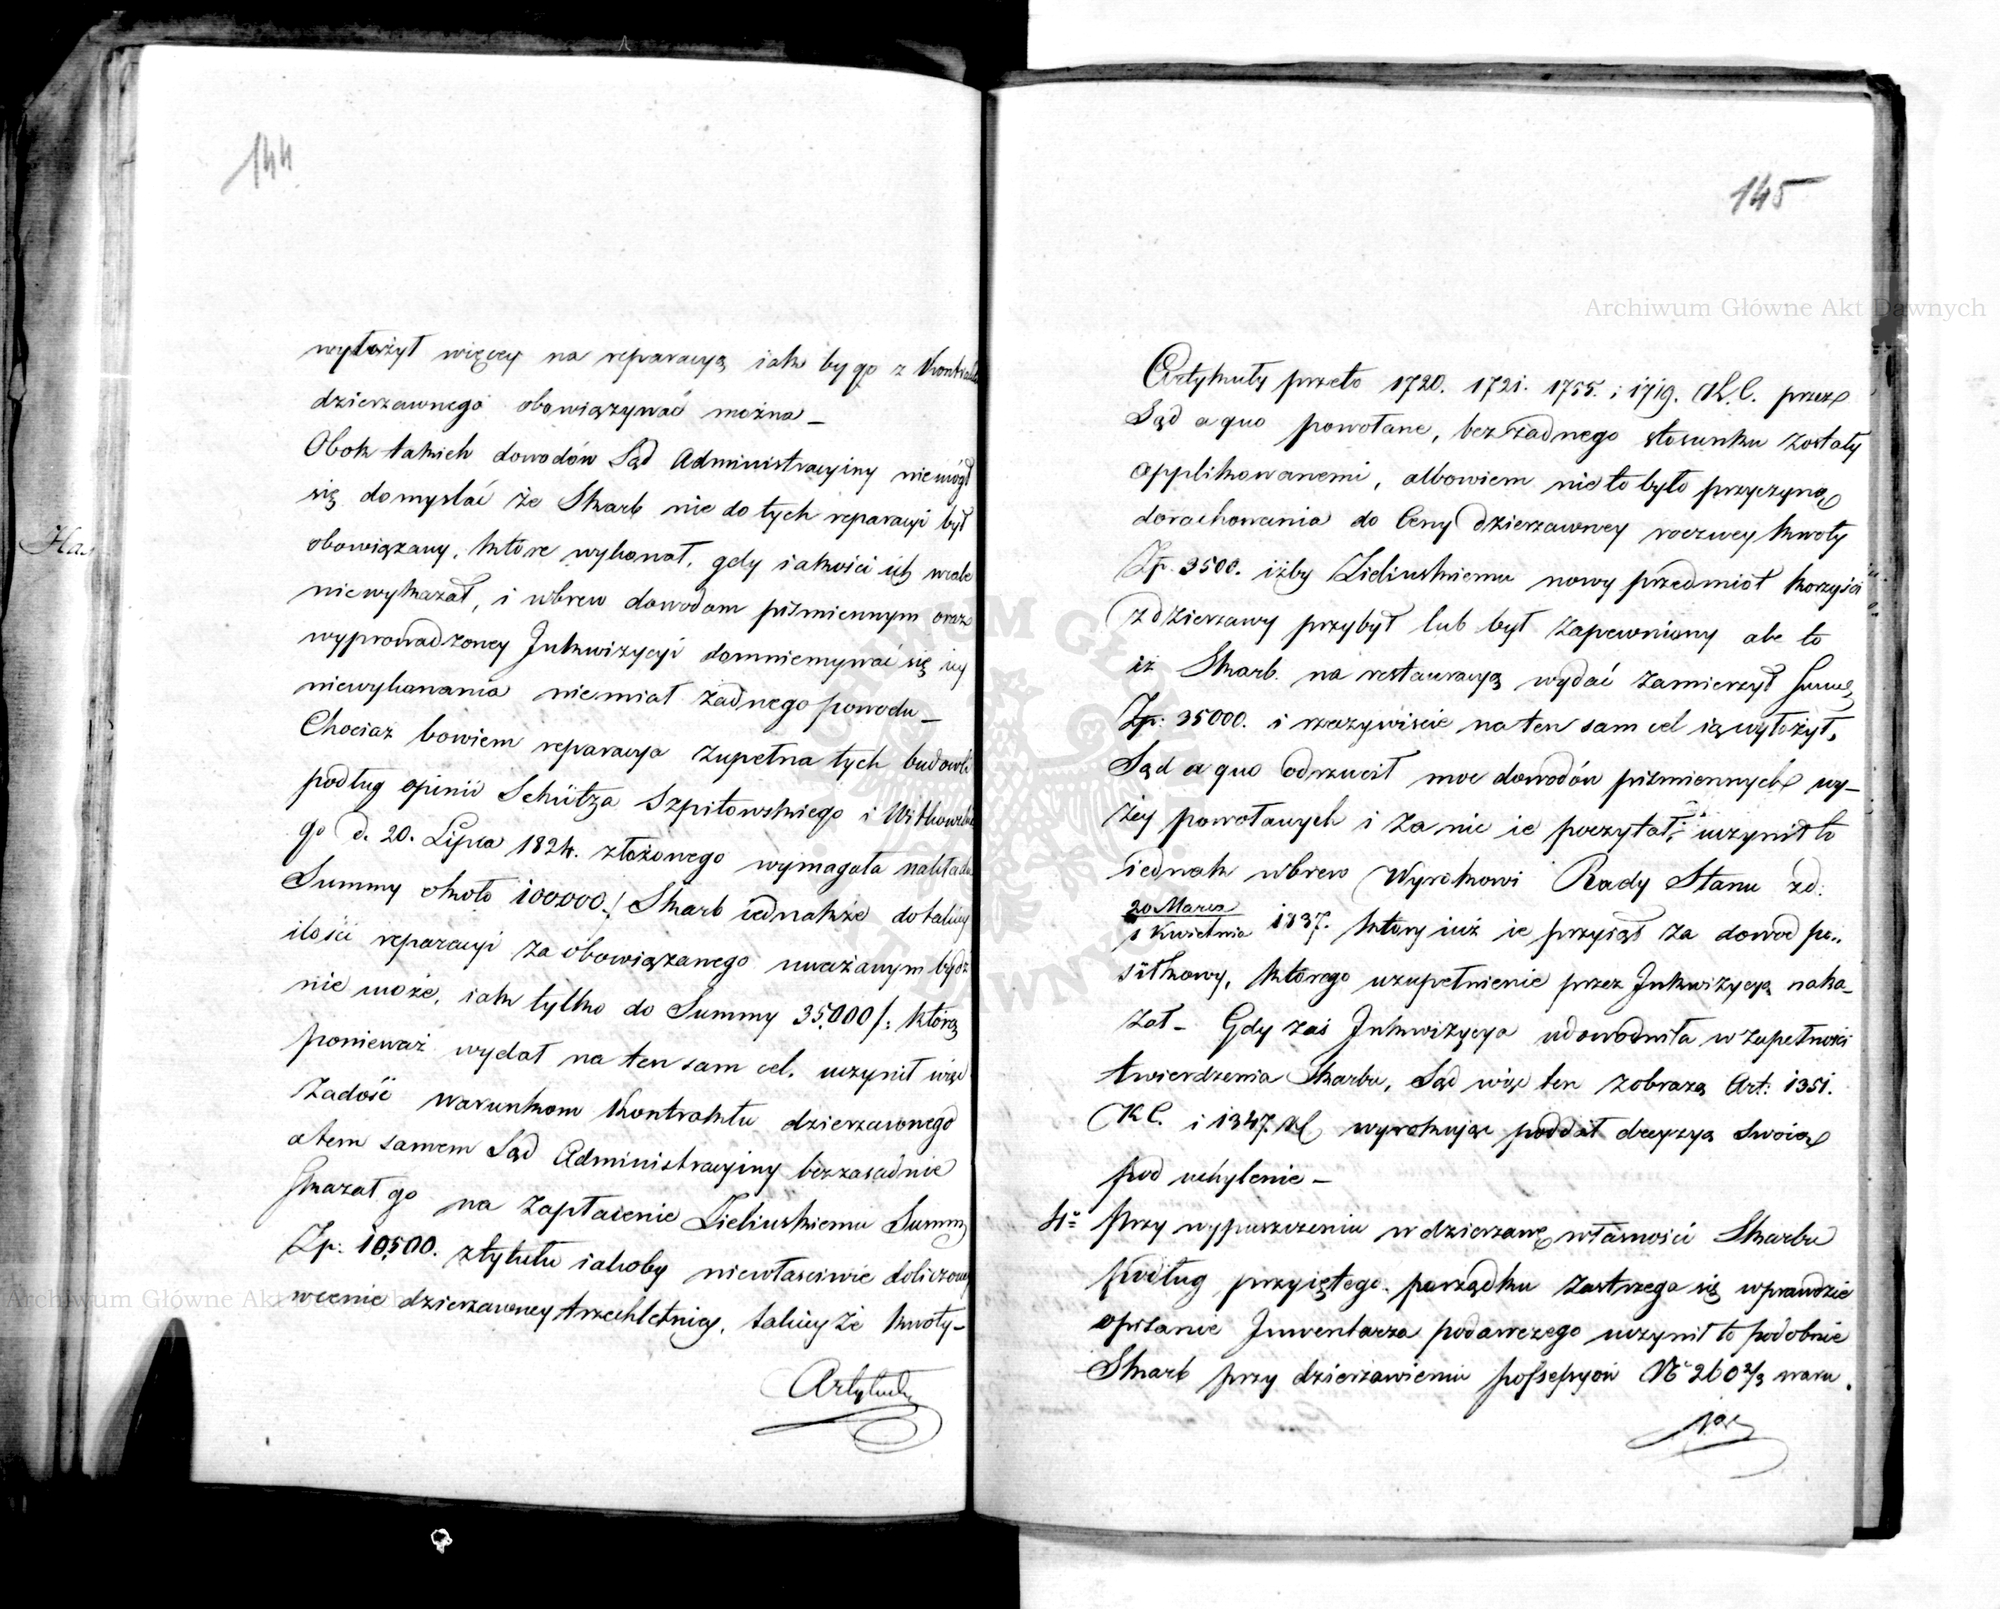 144
wyłożył więcey na reparacyą iak by go z Kontraktu
dzierzawnego obowiązywać można —
Obok takich dowodów Sąd Administracyiny niemógł
się domyslać że Skarb nie do tych reparacyi był
obowiązany, które wykonał, gdy iakości ich wcale
niewykazał, i wbrew dowodom piśmiennym oraz
wyprowadzoney Inkwizycyi domniemywać się icy
niewykonania niemiał żadnego powodu —
Chociaz bowiem reparacya zupełna tych budowli
podług opinii Schütza Szpiłowskiego i Witkowskie
go d. 20. Lipca 1824. złożonego wymagała nakładu
Summy około 100000./ Skarb iednakże do takiey
ilości reparacyi za obowiązanego uważanym bydź
nie może, iak tylko do Summy 35,000 f: którą
ponieważ wydał na ten sam cel, uczynił więc
zadość warunkom Kontraktu dzierzawnego
a tem samem Sąd Administracyiny bezzasadnie
skazał go na zapłacenie Zieliuskiemu Summy
Zp: 10,500. z tytułu iakoby niewłasciwie doliczoney
w cenie dzierzawney trzechletniey, takiey że kwoty —
Artykuły
Ha
145
Artykuły przeto 1720. 1721. 1755. i 1719. K.C. przez
Sąd a quo powołane, bez żadnego stosunku zostały
applikowanemi, albowiem nie to było przyczyną
dorachowania do Ceny dzierzawney roczney kwoty
Zp. 3500. iżby Zieliuskiemu nowy przedmiot korzyści
z dzierzawy przybył lub był zapewniony ale to
iż Skarb na restauracyą wydać zamierzył Summę
Zp: 35000. i rzeczywiście na ten sam cel ią wyłożył,
Sąd a quo odrzucił moc dowodów piśmiennych wy-
żey powołanych i za nic ie poczytał, uczynił to
iednak wbrew Wyrokowi Rady Stanu z d:
20 Marca
1 Kwietnia 1837. który iuż ie przyiął za dowod po„
siłkowy, którego uzupełnienie przez Inkwizycyą naka-
zał — Gdy zaś Inkwizycya udowodniła w zupełności
twierdzenia Skarbu, Sąd więc ten z obrazą Art: 1351.
K C. i 1347. wyrokując poddał decyzyą swoią
pod uchylenie —
4º Przy wypuszczeniu w dzierzawę własności Skarbu
podług przyiętego porządku zastrzega się wprawdzie
opisanie Inwentarza podawczego uczynił to podobnie
Skarb przy dzierzawieniu possessyow Nº 260 2/3 waru.
Archiwum Główne Akt Dawnych